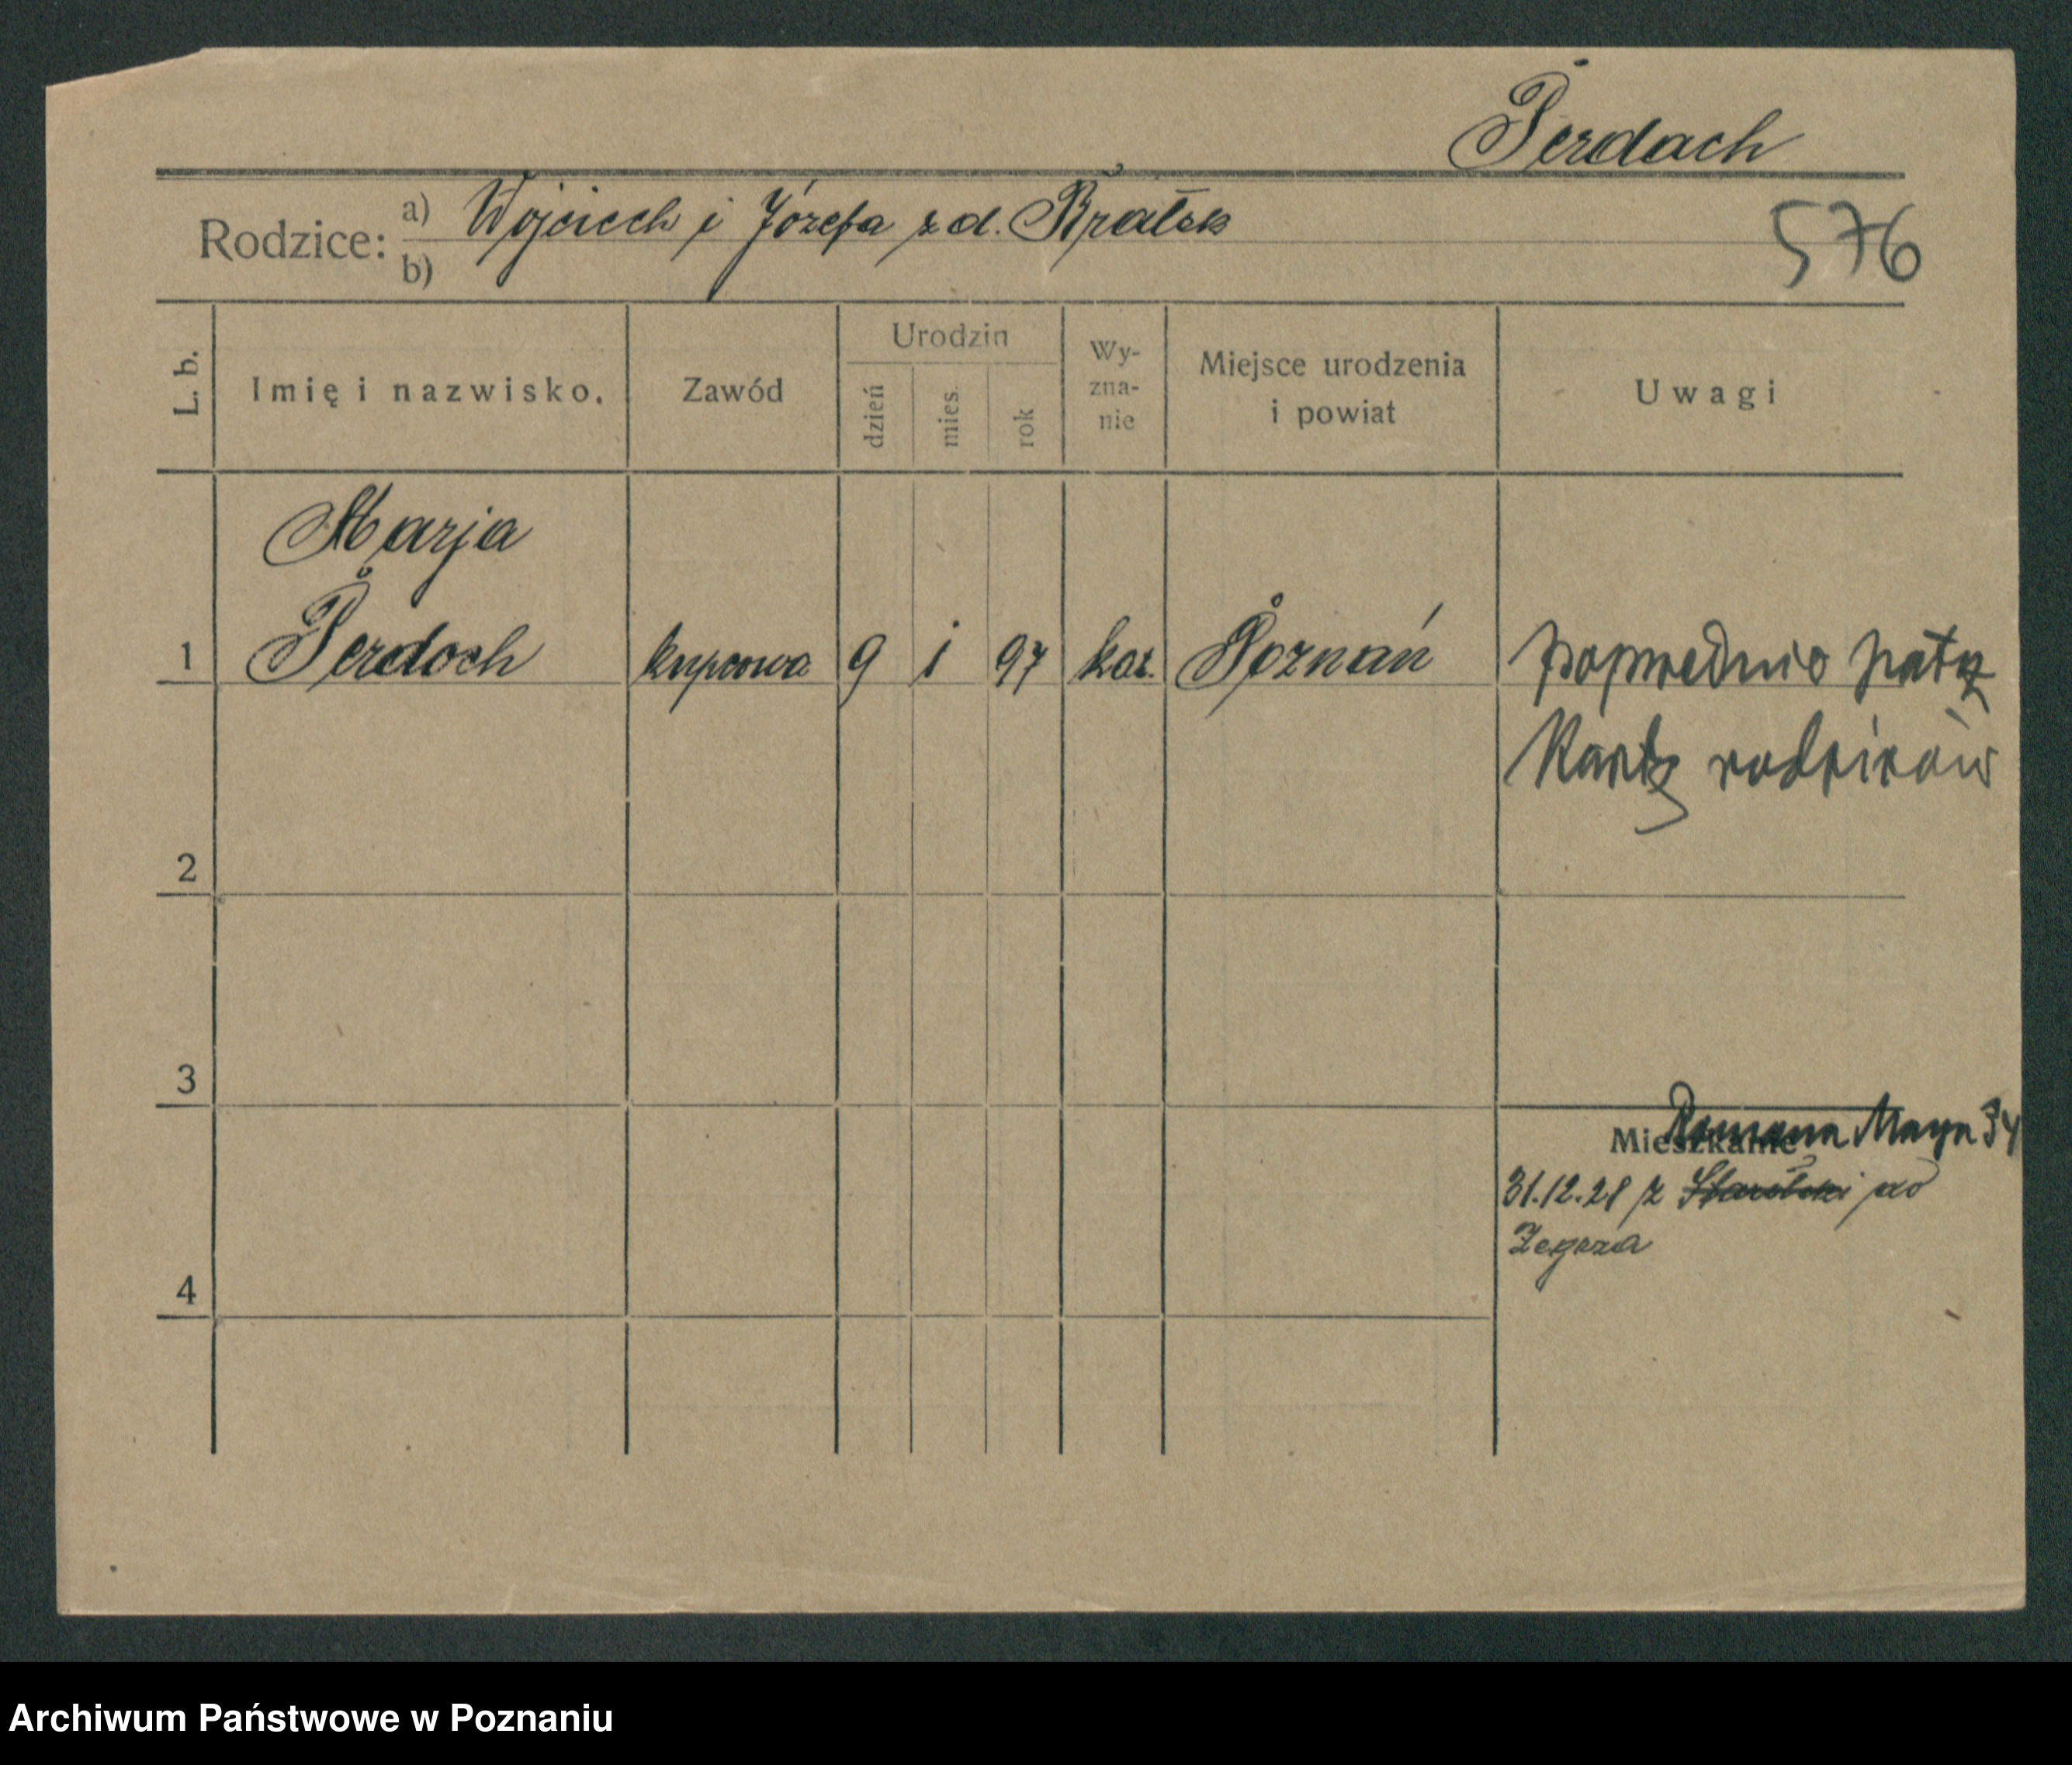 Perdach
Rodzice: a) Wojciech i Józefa z d. Bratek
b)
576
L. b. Imię i nazwisko. Zawód Urodzin dzień mies. rok Wy-zna-nie Miejsce urodzenia i powiat Uwagi
Marja
1 Perdoch kupcowa 9 i 97 kat. Poznań poprzednio patrz
Kartę rodziców
2
3
Mieszkanie Romana Maya 34
31.12.28 z do
4
Archiwum Państwowe w Poznaniu